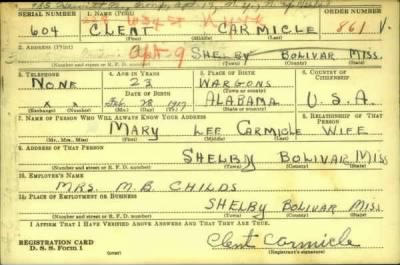 SERIAL NUMBER 1. NAME (Print) ORDER NUMBER
604 CLENT CARMICLE 861 V.
(First) (Middle) (Last)
2. ADDRESS (Print)
Apt-9 SHELBY BOLIVAR MISS.
(Number and street or R. F. D. number) (Town) (County) (State)
3. TELEPHONE 4. AGE IN YEARS 5. PLACE OF BIRTH 6. COUNTRY OF CITIZENSHIP
NONE 23 WARGONS
DATE OF BIRTH (Town or county)
x x Feb. 28 1917 ALABAMA U.S.A.
(Exchange) (Number) (Mo.) (Day) (Yr.) (State or country)
7. NAME OF PERSON WHO WILL ALWAYS KNOW YOUR ADDRESS 8. RELATIONSHIP OF THAT PERSON
MARY LEE CARMICLE WIFE
(Mr., Mrs., Miss) (First) (Middle) (Last)
9. ADDRESS OF THAT PERSON
SHELBY BOLIVAR MISS
(Number and street or R. F. D. number) (Town) (County) (State)
10. EMPLOYER'S NAME
MRS. M.B. CHILDS
11. PLACE OF EMPLOYMENT OR BUSINESS
SHELBY BOLIVAR MISS.
(Number and street or R. F. D. number) (Town) (County) (State)
I AFFIRM THAT I HAVE VERIFIED ABOVE ANSWERS AND THAT THEY ARE TRUE.
REGISTRATION CARD
D. S. S. Form 1 Clent Carmicle
(over) (Registrant's signature)